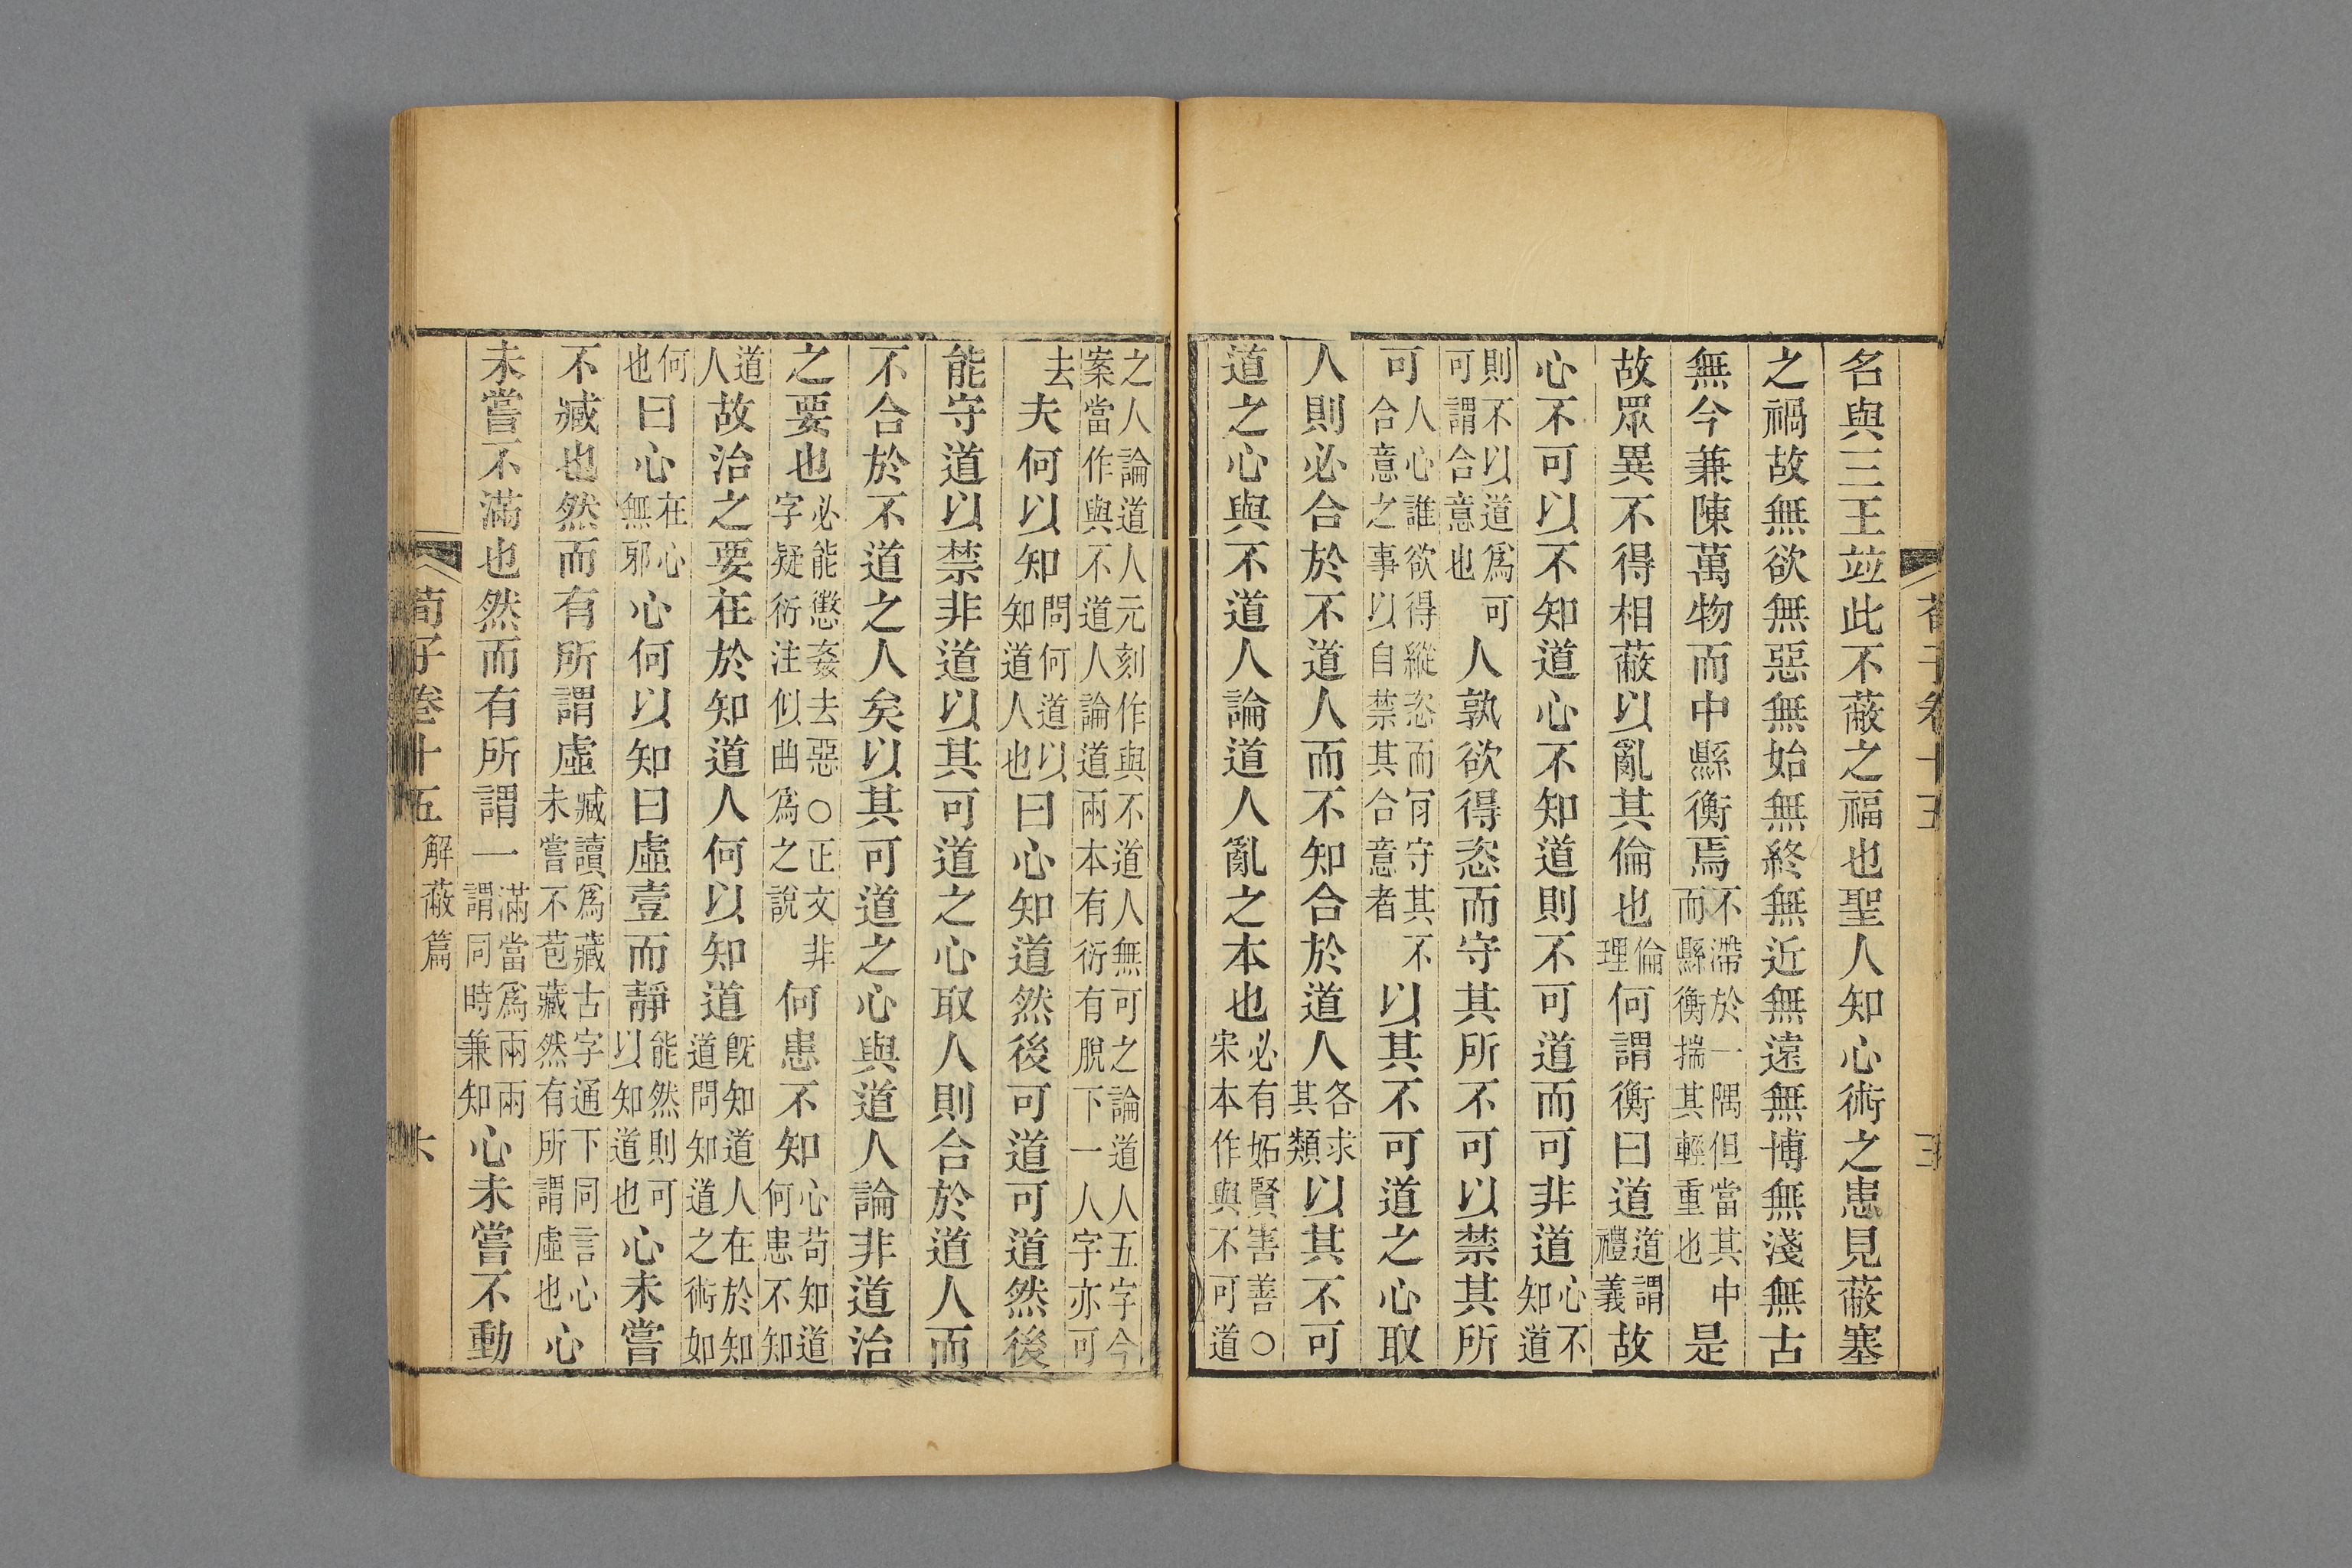 名與三王竝此不蔽之福也聖人知心術之患見蔽塞
之禍故無欲無惡無始無終無近無遠無博無淺無古
無今兼陳萬物而中縣衡焉不滯於一隅但當其中而縣衡揣其輕重也是
故眾異不得相蔽以亂其倫也倫理何謂衡曰道道謂禮義故
心不可以不知道心不知道則不可道而可非道心不知道
則不以道爲可可謂合意也人孰欲得恣而守其所不可以禁其所
可人心誰欲得縱恣而肎守其不合意之事以自禁其合意者以其不可道之心取
人則必合於不道人而不知合於道人各求其類以其不可
道之心與不道人論道人亂之本也必有妬賢害善○宋本作與不可道
之人論道人元刻作與不道人無可之論道人五字今案當作與不道人論道兩本有衍有脫下一人字亦可
去夫何以知問何道以知道人也曰心知道然後可道可道然後
能守道以禁非道以其可道之心取人則合於道人而
不合於不道之人矣以其可道之心與道人論非道治
之要也必能懲姦去惡○正文非字疑衍注似曲爲之說何患不知心苟知道何患不知
道人故治之要在於知道人何以知道旣知道人在於知道問知道之術如
何也曰心在心無邪心何以知曰虛壹而靜能然則可以知道也心未嘗
不臧也然而有所謂虛臧讀爲藏古字通下同言心未嘗不苞藏然有所謂虛也心
未嘗不滿也然而有所謂一滿當爲兩兩謂同時兼知心未嘗不動
荀子卷十五 解蔽篇 六